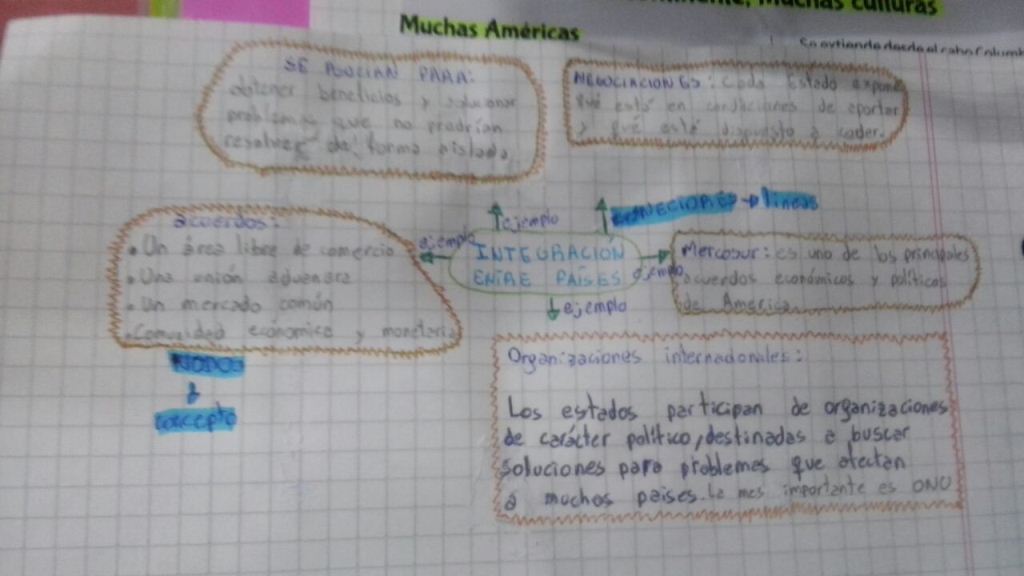 muchas culturas
Muchas Américas
SE ASOCIAN PARA:
obtener beneficios y solucionar
problemas que no prodrían
resolver de forma aislada
NEGOCIACIONES: Cada Estado expone
qué está en condiciones de aportar
y qué está dispuesto a ceder.
CONECCIONES → lineas
ejemplo
ejemplo
INTEGRACIÓN
ENTRE PAÍSES
ejemplo
ejemplo
acuerdos:
• Un área libre de comercio
• Una unión aduanera
• Un mercado común
• Comunidad económica y monetaria
NODOS
concepto
Mercosur: es uno de los principales
acuerdos económicos y politicos
de America
Organizaciones internacionales:
Los estados participan de organizaciones
de carácter político, destinadas a buscar
soluciones para problemas que afectan
a muchos paises. La mas importante es ONU